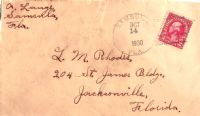 Fla.
OCT
14
1930
FLA.
L. M. Rhodes,
204 St James Bldg,
Jacksonville,
Florida.